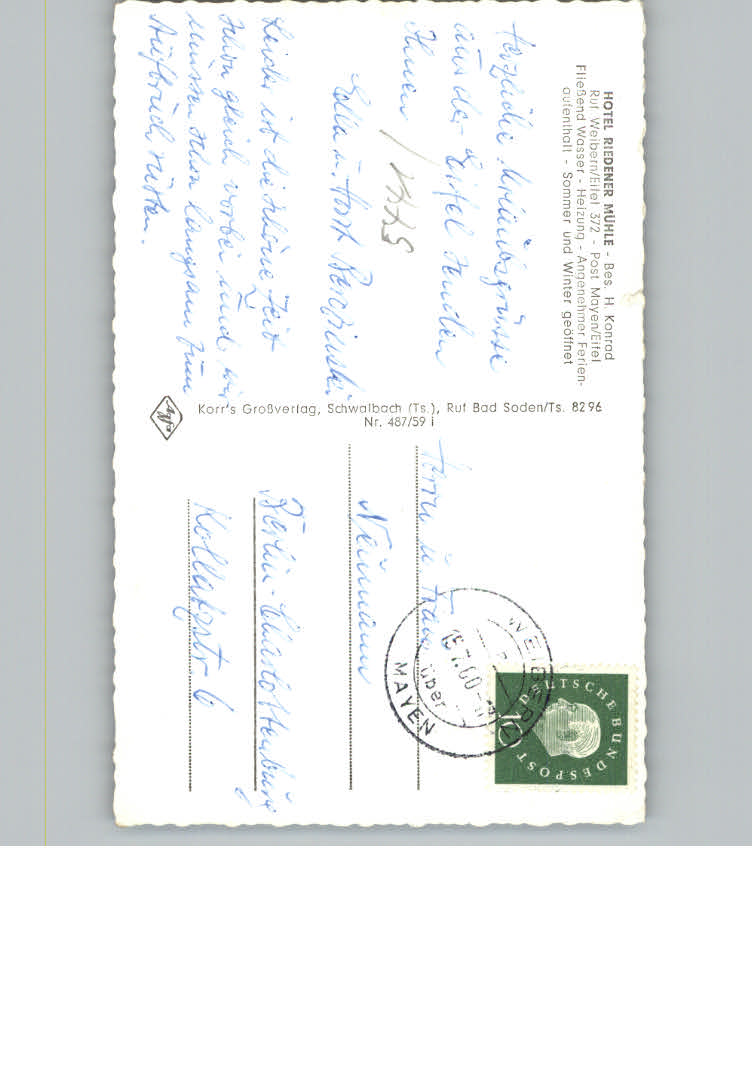 HOTEL RIEDENER MÜHLE - Bes. H. Konrad
Ruf Weibern/Eifel 372 - Post Mayen/Eifel
Fließend Wasser - Heizung - Angenehmer Ferien-
aufenthalt - Sommer und Winter geöffnet
Herzliche Urlaubsgrüsse
aus der Eifel senden
Ihnen
u. Horst
Leider ist die schöne Zeit
schon gleich vorbei und wir
müssen schon langsam zum
Aufbruch rüsten.
Korr's Großverlag, Schwalbach (Ts.), Ruf Bad Soden/Ts. 82 96
Nr. 487/59 i
Agfa
Herrn u. Frau
Neumann
Berlin-Charlottenburg
str. 6
WEIBERN
über
MAYEN
15.7.60
DEUTSCHE BUNDESPOST
10